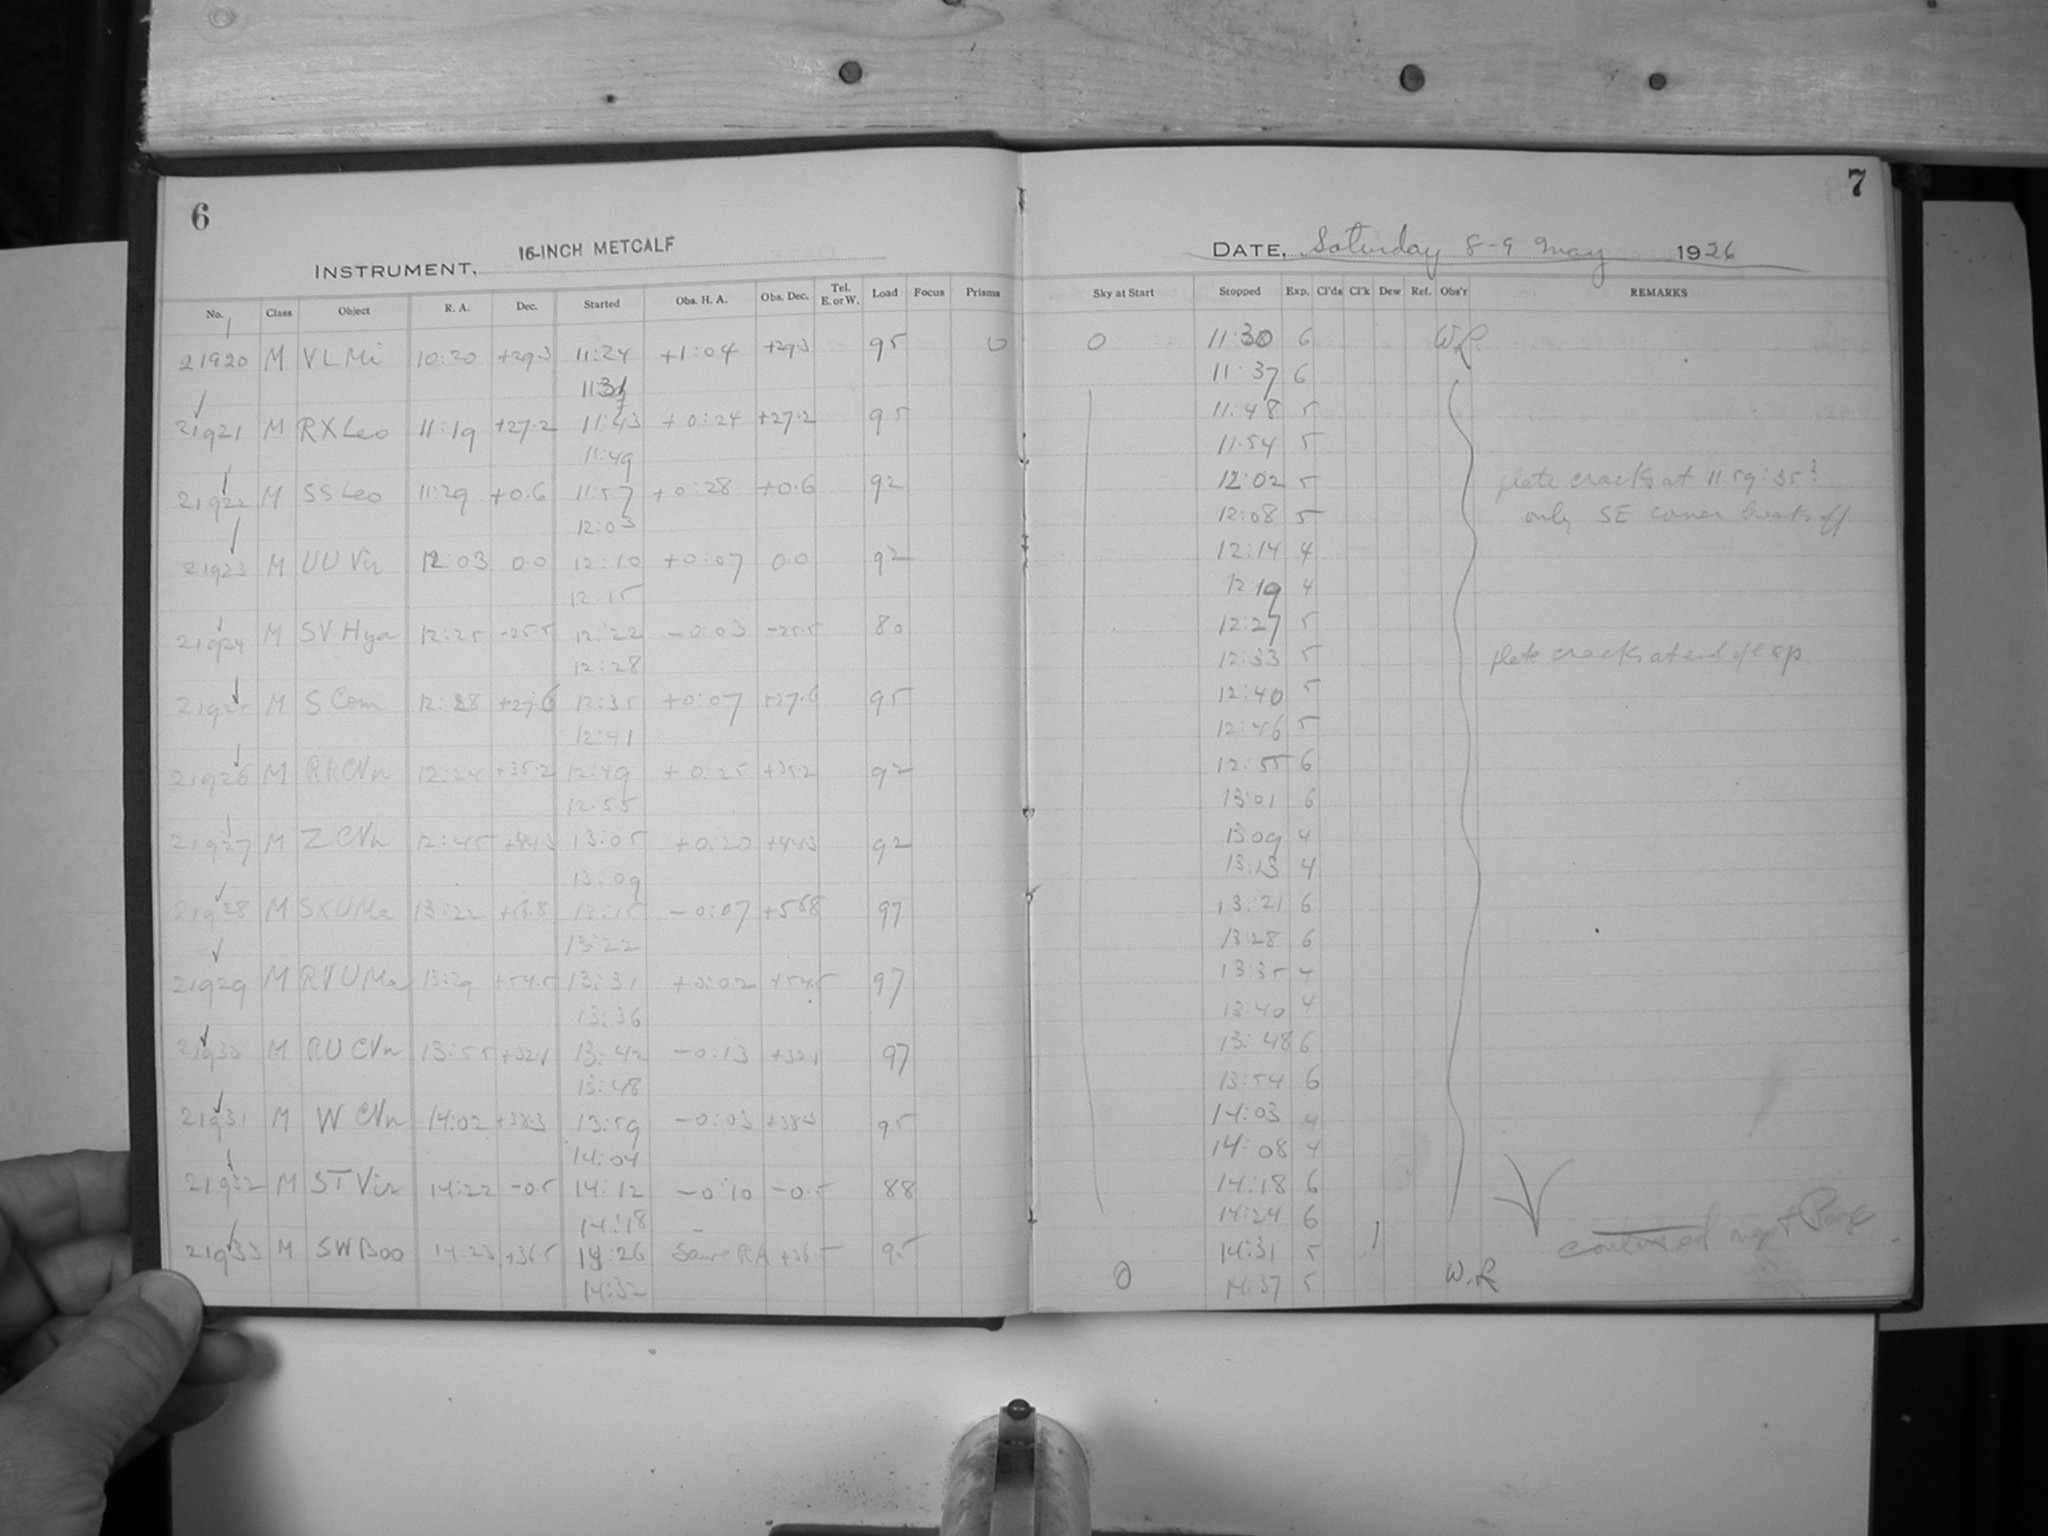 6
7
INSTRUMENT, 16-INCH METCALF
DATE, Saturday 8-9 May 1926
No. Class Object R. A. Dec. Started Obs. H. A. Obs. Dec. Tel. E. or W. Load Focus Prisms Sky at Start Stopped Exp. Cl'ds Cl'k Dew Ref. Obs'r REMARKS
21920 M V LMi 10:20 +29.3 11:24 +1:04 +29.3 95 0 0 11:30 6 W.R.
11:31 11:37 6
21921 M RX Leo 11:19 +27.2 11:43 +0:24 +27.2 95 11:48 5
11:49 11:54 5
21922 M SS Leo 11:29 +0.6 11:57 +0:28 +0.6 92 12:02 5 plate cracks at 11:59:35?
12:03 12:08 5 only SE corner breaks off
21923 M UU Vir 12:03 0.0 12:10 +0:07 0.0 92 12:14 4
12:15 12:19 4
21924 M SV Hya 12:25 -25.5 12:22 -0:03 -25.5 80 12:27 5
12:28 12:33 5 plate cracks at end of exp.
21925 M S Com 12:28 +27.6 12:35 +0:07 +27.6 95 12:40 5
12:41 12:46 5
21926 M RR CVn 12:24 +35.2 12:49 +0:25 +35.2 92 12:55 6
12:55 13:01 6
21927 M Z CVn 12:45 +44.3 13:05 +0:20 +44.3 92 13:09 4
13:09 13:13 4
21928 M SX UMa 13:22 +56.8 13:15 -0:07 +56.8 97 13:21 6
13:22 13:28 6
21929 M RV UMa 13:29 +54.5 13:31 +0:02 +54.5 97 13:35 4
13:36 13:40 4
21930 M RU CVn 13:55 +32.1 13:42 -0:13 +32.1 97 13:48 6
13:48 13:54 6
21931 M W CVn 14:02 +38.3 13:59 -0:03 +38.3 95 14:03 4
14:04 14:08 4
21932 M ST Vir 14:22 -0.5 14:12 -0:10 -0.5 88 14:18 6
14:18 14:24 6
21933 M SW Boo 14:23 +36.5 14:26 Same RA +36.5 95 14:31 5 continued next Page
14:32 0 14:37 5 W.R